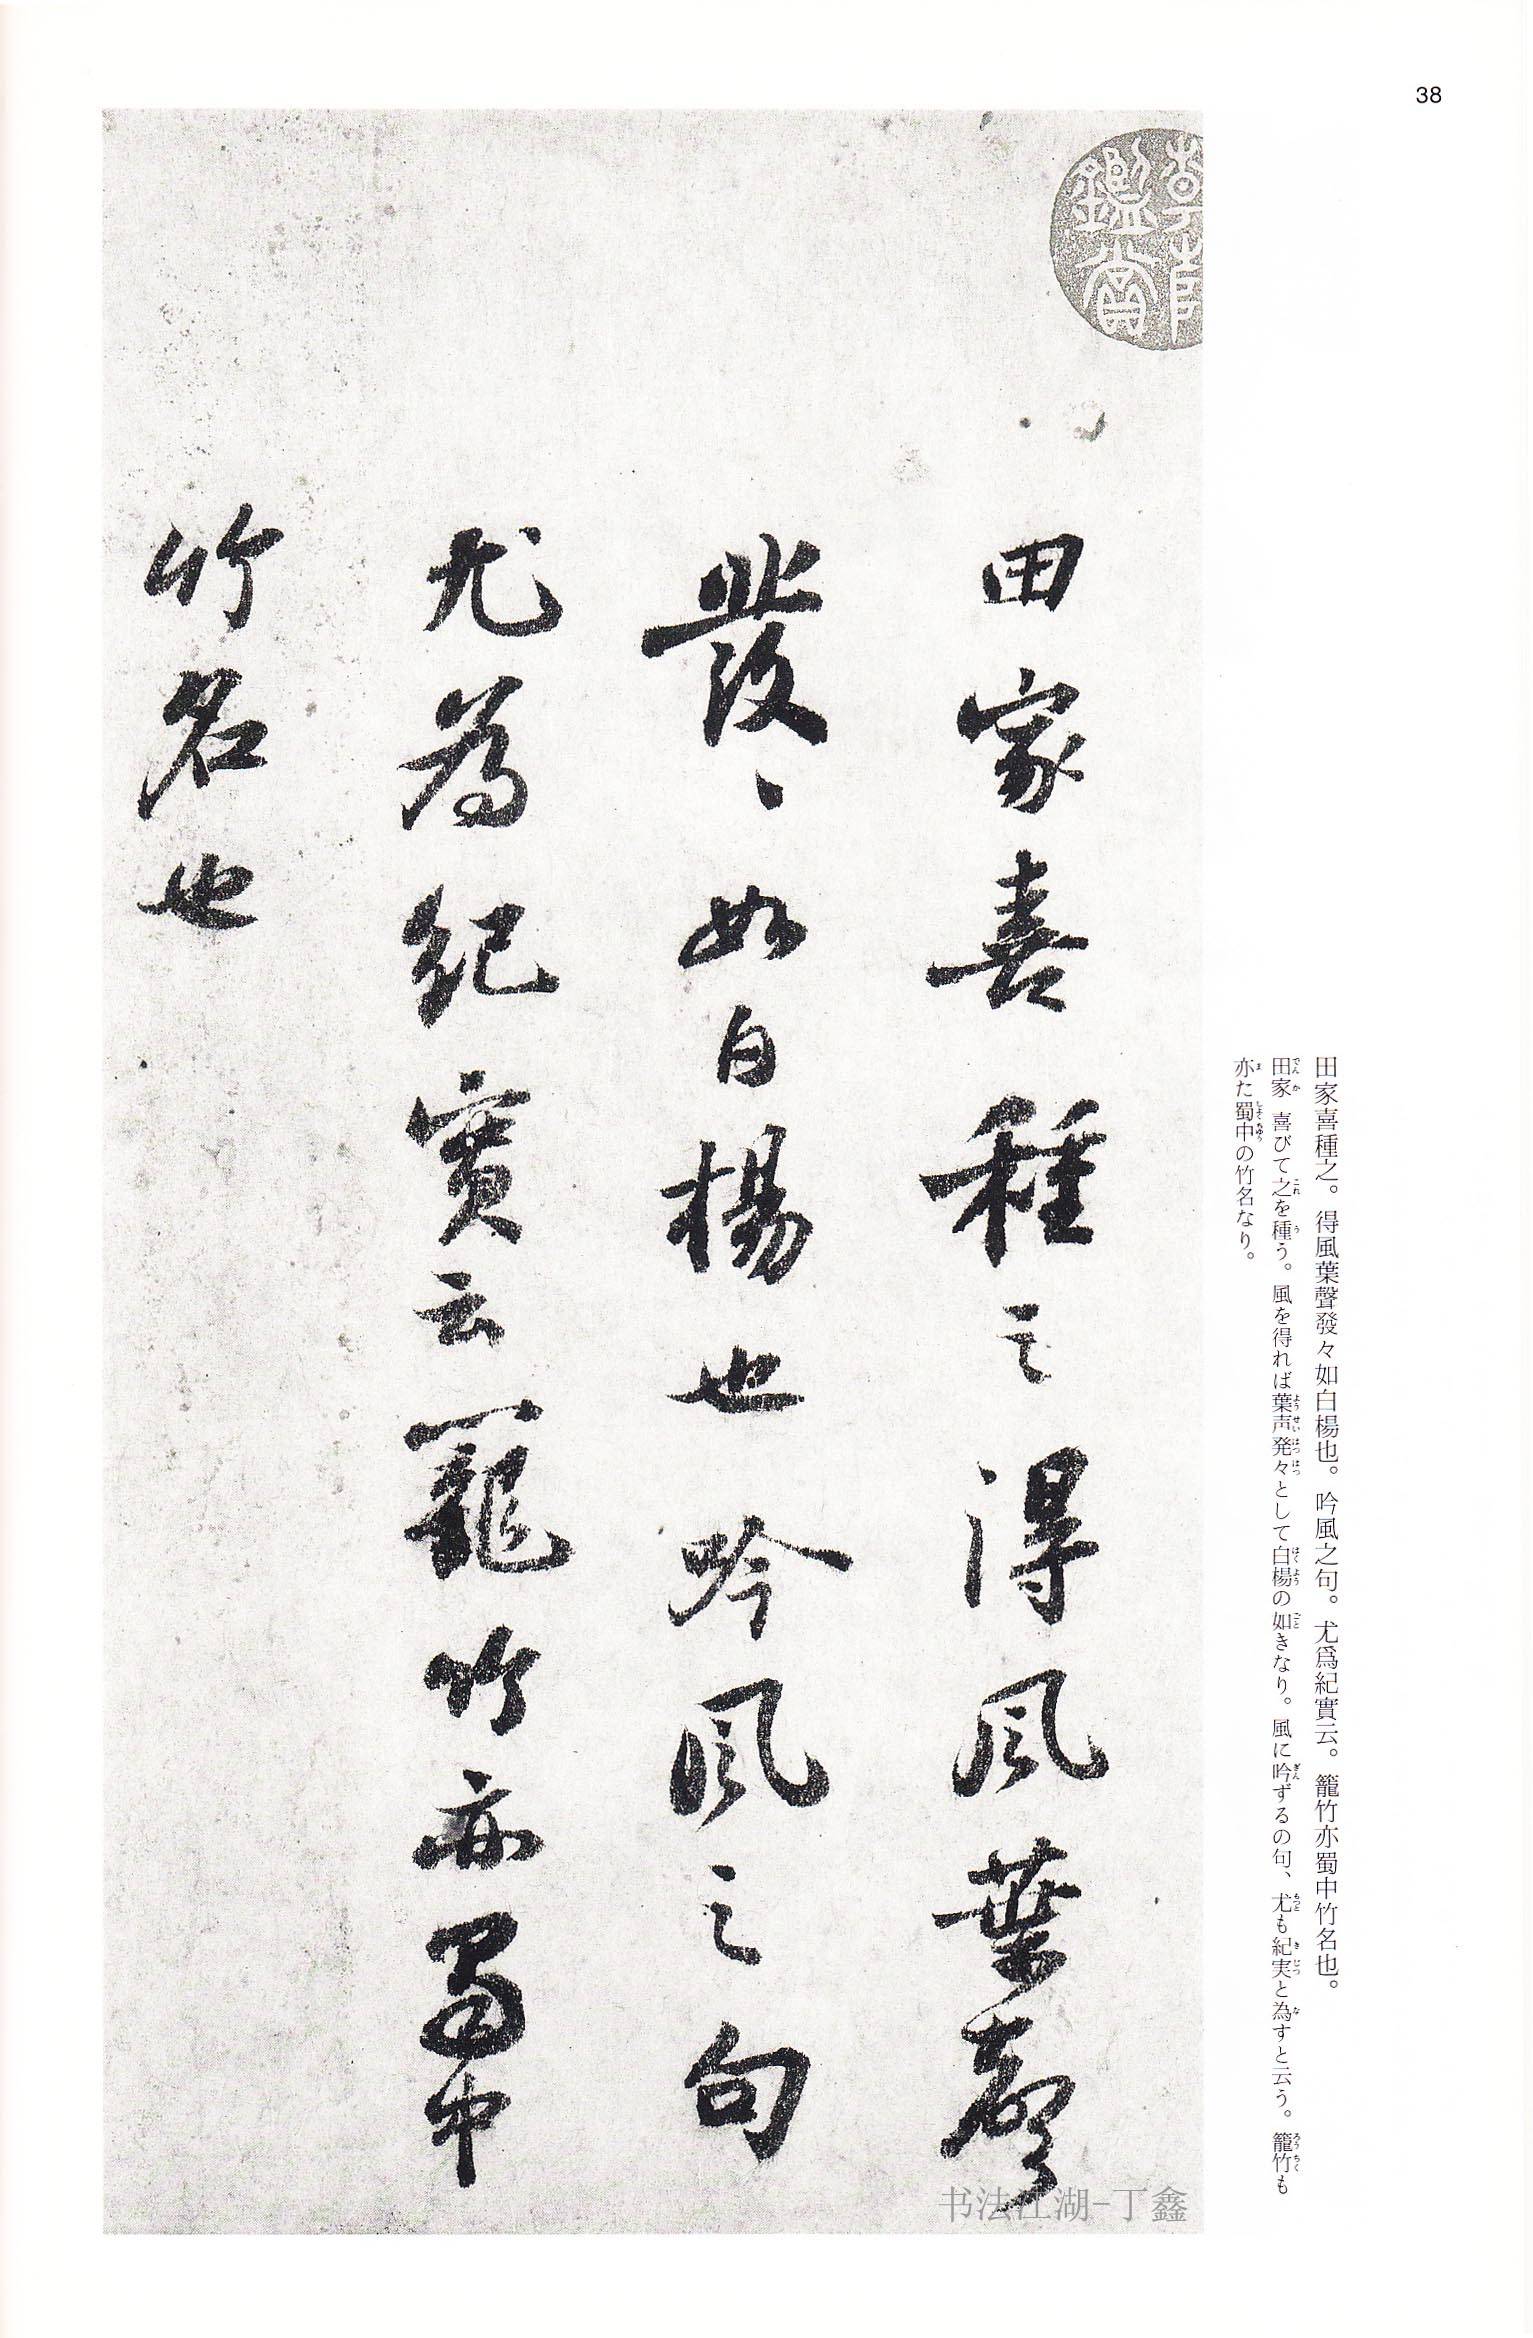 38
田家喜種之。得風葉聲發々如白楊也。吟風之句。尤爲紀實云。籠竹亦蜀中竹名也。
田家喜びて之を種う。風を得れば葉声発々として白楊の如きなり。風に吟ずるの句、尤も紀実と為すと云う。籠竹も
亦た蜀中の竹名なり。
田家喜種之得風葉聲
發〻如白楊也吟風之句
尤為紀實云籠竹亦蜀中
竹名也
鑑賞
书法江湖-丁鑫